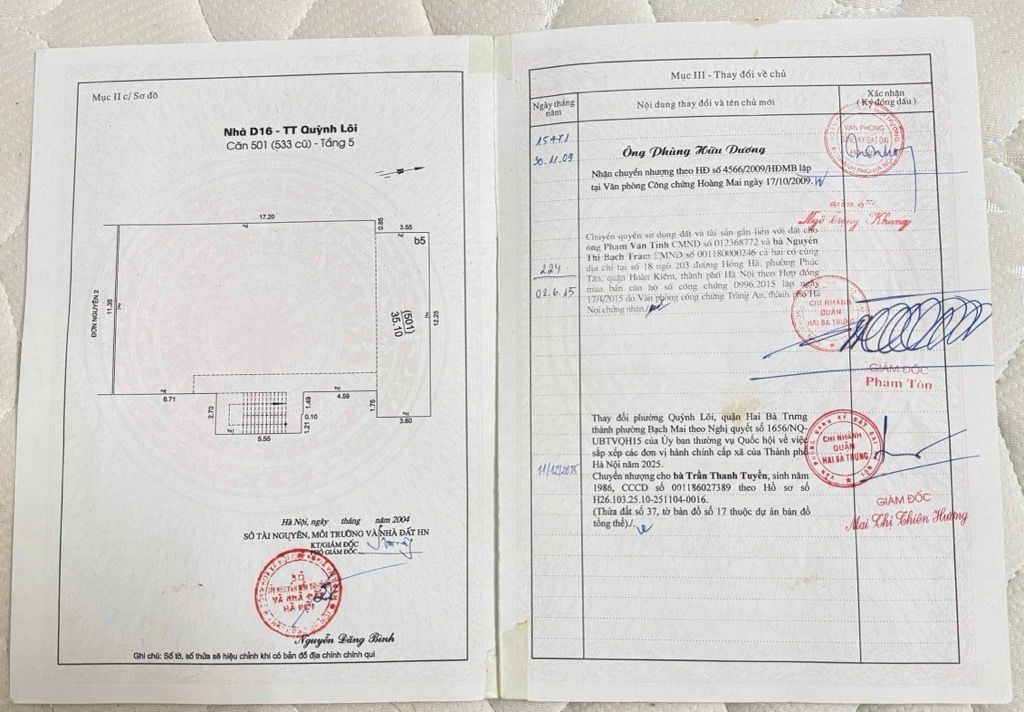 Mục II c/ Sơ đồ
Nhà D16 - TT Quỳnh Lôi
Căn 501 (533 cũ) - Tầng 5
17.20
0.85
3.55
b5
ĐƠN NGUYÊN 2
11.35
(501)
35.10
12.25
6.71
2.70
5.55
1.49
0.10
1.21
4.59
1.75
3.80
Hà Nội, ngày tháng năm 2004
SỞ TÀI NGUYÊN, MÔI TRƯỜNG VÀ NHÀ ĐẤT HN
KT/GIÁM ĐỐC
PHÓ GIÁM ĐỐC
SỞ
TÀI NGUYÊN MÔI TRƯỜNG
VÀ NHÀ ĐẤT
HÀ NỘI
Nguyễn Đăng Bình
Ghi chú: Số tờ, số thửa sẽ hiệu chỉnh khi có bản đồ địa chính chính qui
Mục III - Thay đổi về chủ
Ngày tháng năm
Nội dung thay đổi và tên chủ mới
Xác nhận
(Ký đóng dấu)
30.11.09
Ông Phùng Hữu Dương
Nhận chuyển nhượng theo HĐ số 4566/2009/HĐMB lập
tại Văn phòng Công chứng Hoàng Mai ngày 17/10/2009.
VĂN PHÒNG
ĐĂNG KÝ ĐẤT ĐAI
Giám đốc
Ngô Trọng Khang
224
02.6.15
Chuyển quyền sử dụng đất và tài sản gắn liền với đất cho
ông Phạm Văn Tính CMND số 012368772 và bà Nguyễn
Thị Bạch Trâm CMND số 001180000246 cả hai có cùng
địa chỉ tại số 18 ngõ 203 đường Hồng Hà, phường Phúc
Tân, quận Hoàn Kiếm, thành phố Hà Nội theo Hợp đồng
mua bán căn hộ số công chứng 0996.2015 lập ngày
17/4/2015 do Văn phòng công chứng Tràng An, thành phố Hà
Nội chứng nhận./.
CHI NHÁNH
QUẬN
HAI BÀ TRƯNG
GIÁM ĐỐC
Phạm Tôn
11/12/2025
Thay đổi phường Quỳnh Lôi, quận Hai Bà Trưng
thành phường Bạch Mai theo Nghị quyết số 1656/NQ-
UBTVQH15 của Ủy ban thường vụ Quốc hội về việc
sắp xếp các đơn vị hành chính cấp xã của Thành phố
Hà Nội năm 2025.
Chuyển nhượng cho bà Trần Thanh Tuyền, sinh năm
1986, CCCD số 001186027389 theo Hồ sơ số
H26.103.25.10-251104-0016.
(Thửa đất số 37, tờ bản đồ số 17 thuộc dự án bản đồ
tổng thể)./.
CHI NHÁNH
QUẬN
HAI BÀ TRƯNG
GIÁM ĐỐC
Mai Thị Thiên Hương